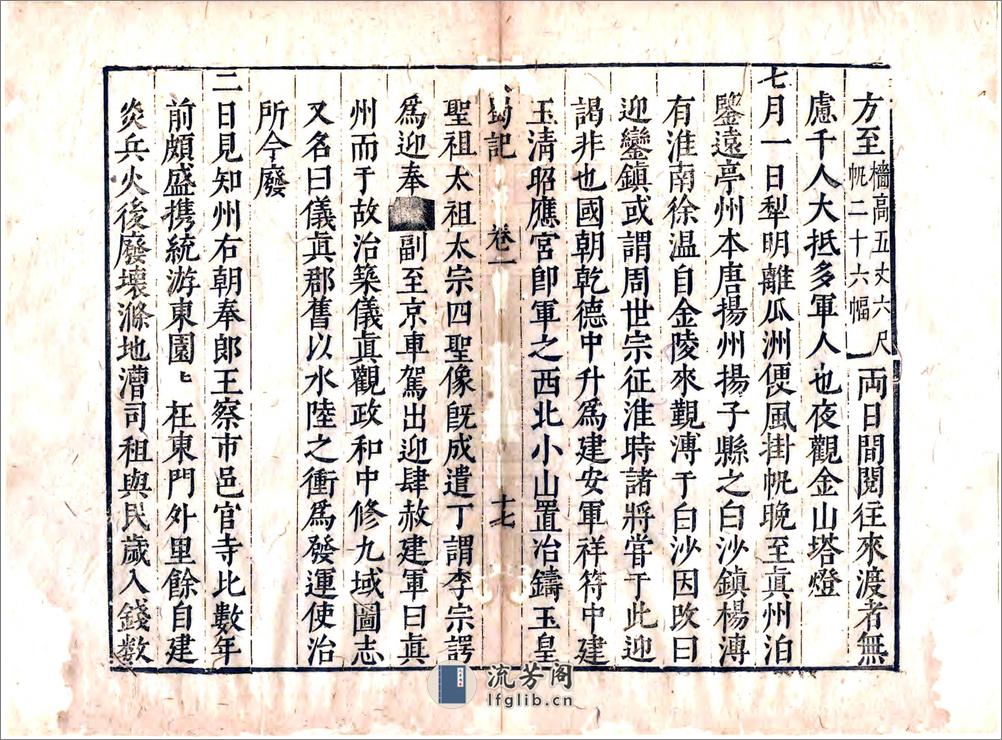 方至檣高五丈六尺帆二十六幅兩日間閱往來渡者無
慮千人大抵多軍人也夜觀金山塔燈
七月一日犁明離瓜洲便風掛帆晚至眞州泊
鑒遠亭州本唐揚州揚子縣之白沙鎮楊溥
有淮南徐溫自金陵來覲溥于白沙因改曰
迎鑾鎮或謂周世宗征淮時諸將嘗于此迎
謁非也國朝乾德中升爲建安軍祥符中建
玉清昭應宮卽軍之西北小山置冶鑄玉皇
蜀記 卷一 十七
聖祖太祖太宗四聖像旣成遣丁謂李宗諤
爲迎奉副至京車駕出迎肆赦建軍曰眞
州而于故治築儀眞觀政和中修九域圖志
又名曰儀眞郡舊以水陸之衝爲發運使治
所今廢
二日見知州右朝奉郎王察市邑官寺比數年
前頗盛攜統游東園〻在東門外里餘自建
炎兵火後廢壞滌地漕司租與民歲入錢数
流芳阁
lfglib.cn